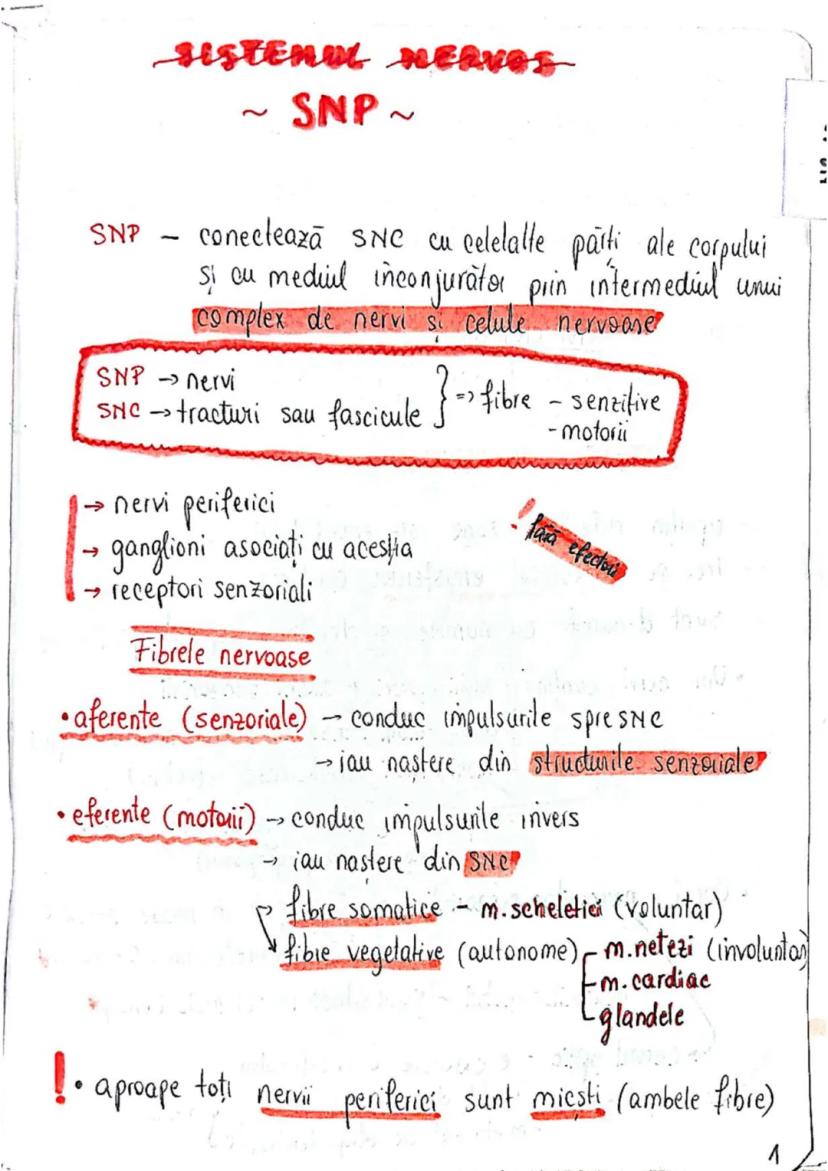 SISTEMUL NERVOS
~ SNP ~
SNP - conectează SNC cu celelalte părți ale corpului
și cu mediul înconjurător prin intermediul unui
complex de nervi și celule nervoase
SNP → nervi
SNC → tracturi sau fascicule } => fibre - senzitive
- motorii
→ nervi periferici
→ ganglioni asociati cu aceștia
→ receptori senzoriali
! fără efectori
Fibrele nervoase
• aferente (senzoriale) → conduc impulsurile spre SNC
→ iau naștere din structurile senzoriale
• eferente (motorii) → conduc impulsurile invers
→ iau naștere din SNC
fibre somatice - m. scheletici (voluntar)
fibre vegetative (autonome) - m. netezi (involuntar)
- m. cardiac
- glandele
! • aproape toți nervii periferici sunt micști (ambele fibre)
1